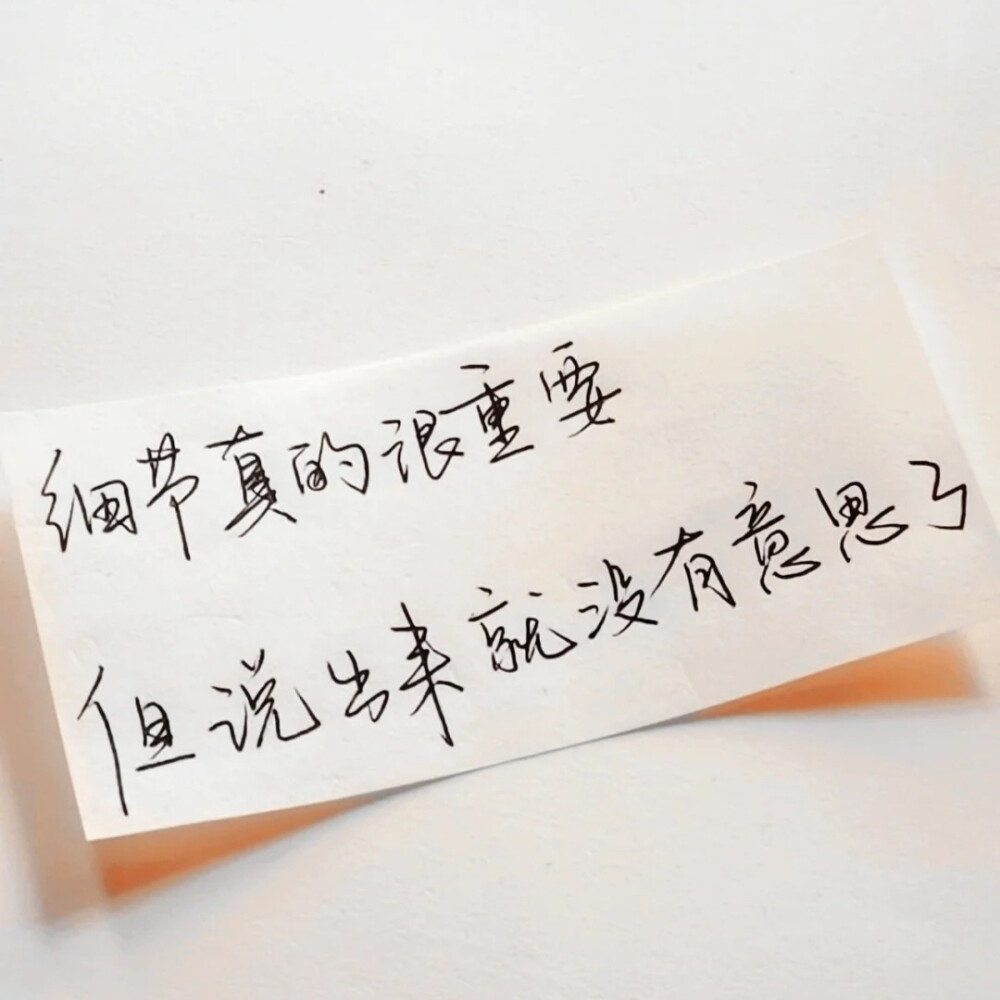 细节真的很重要
但说出来就没有意思了